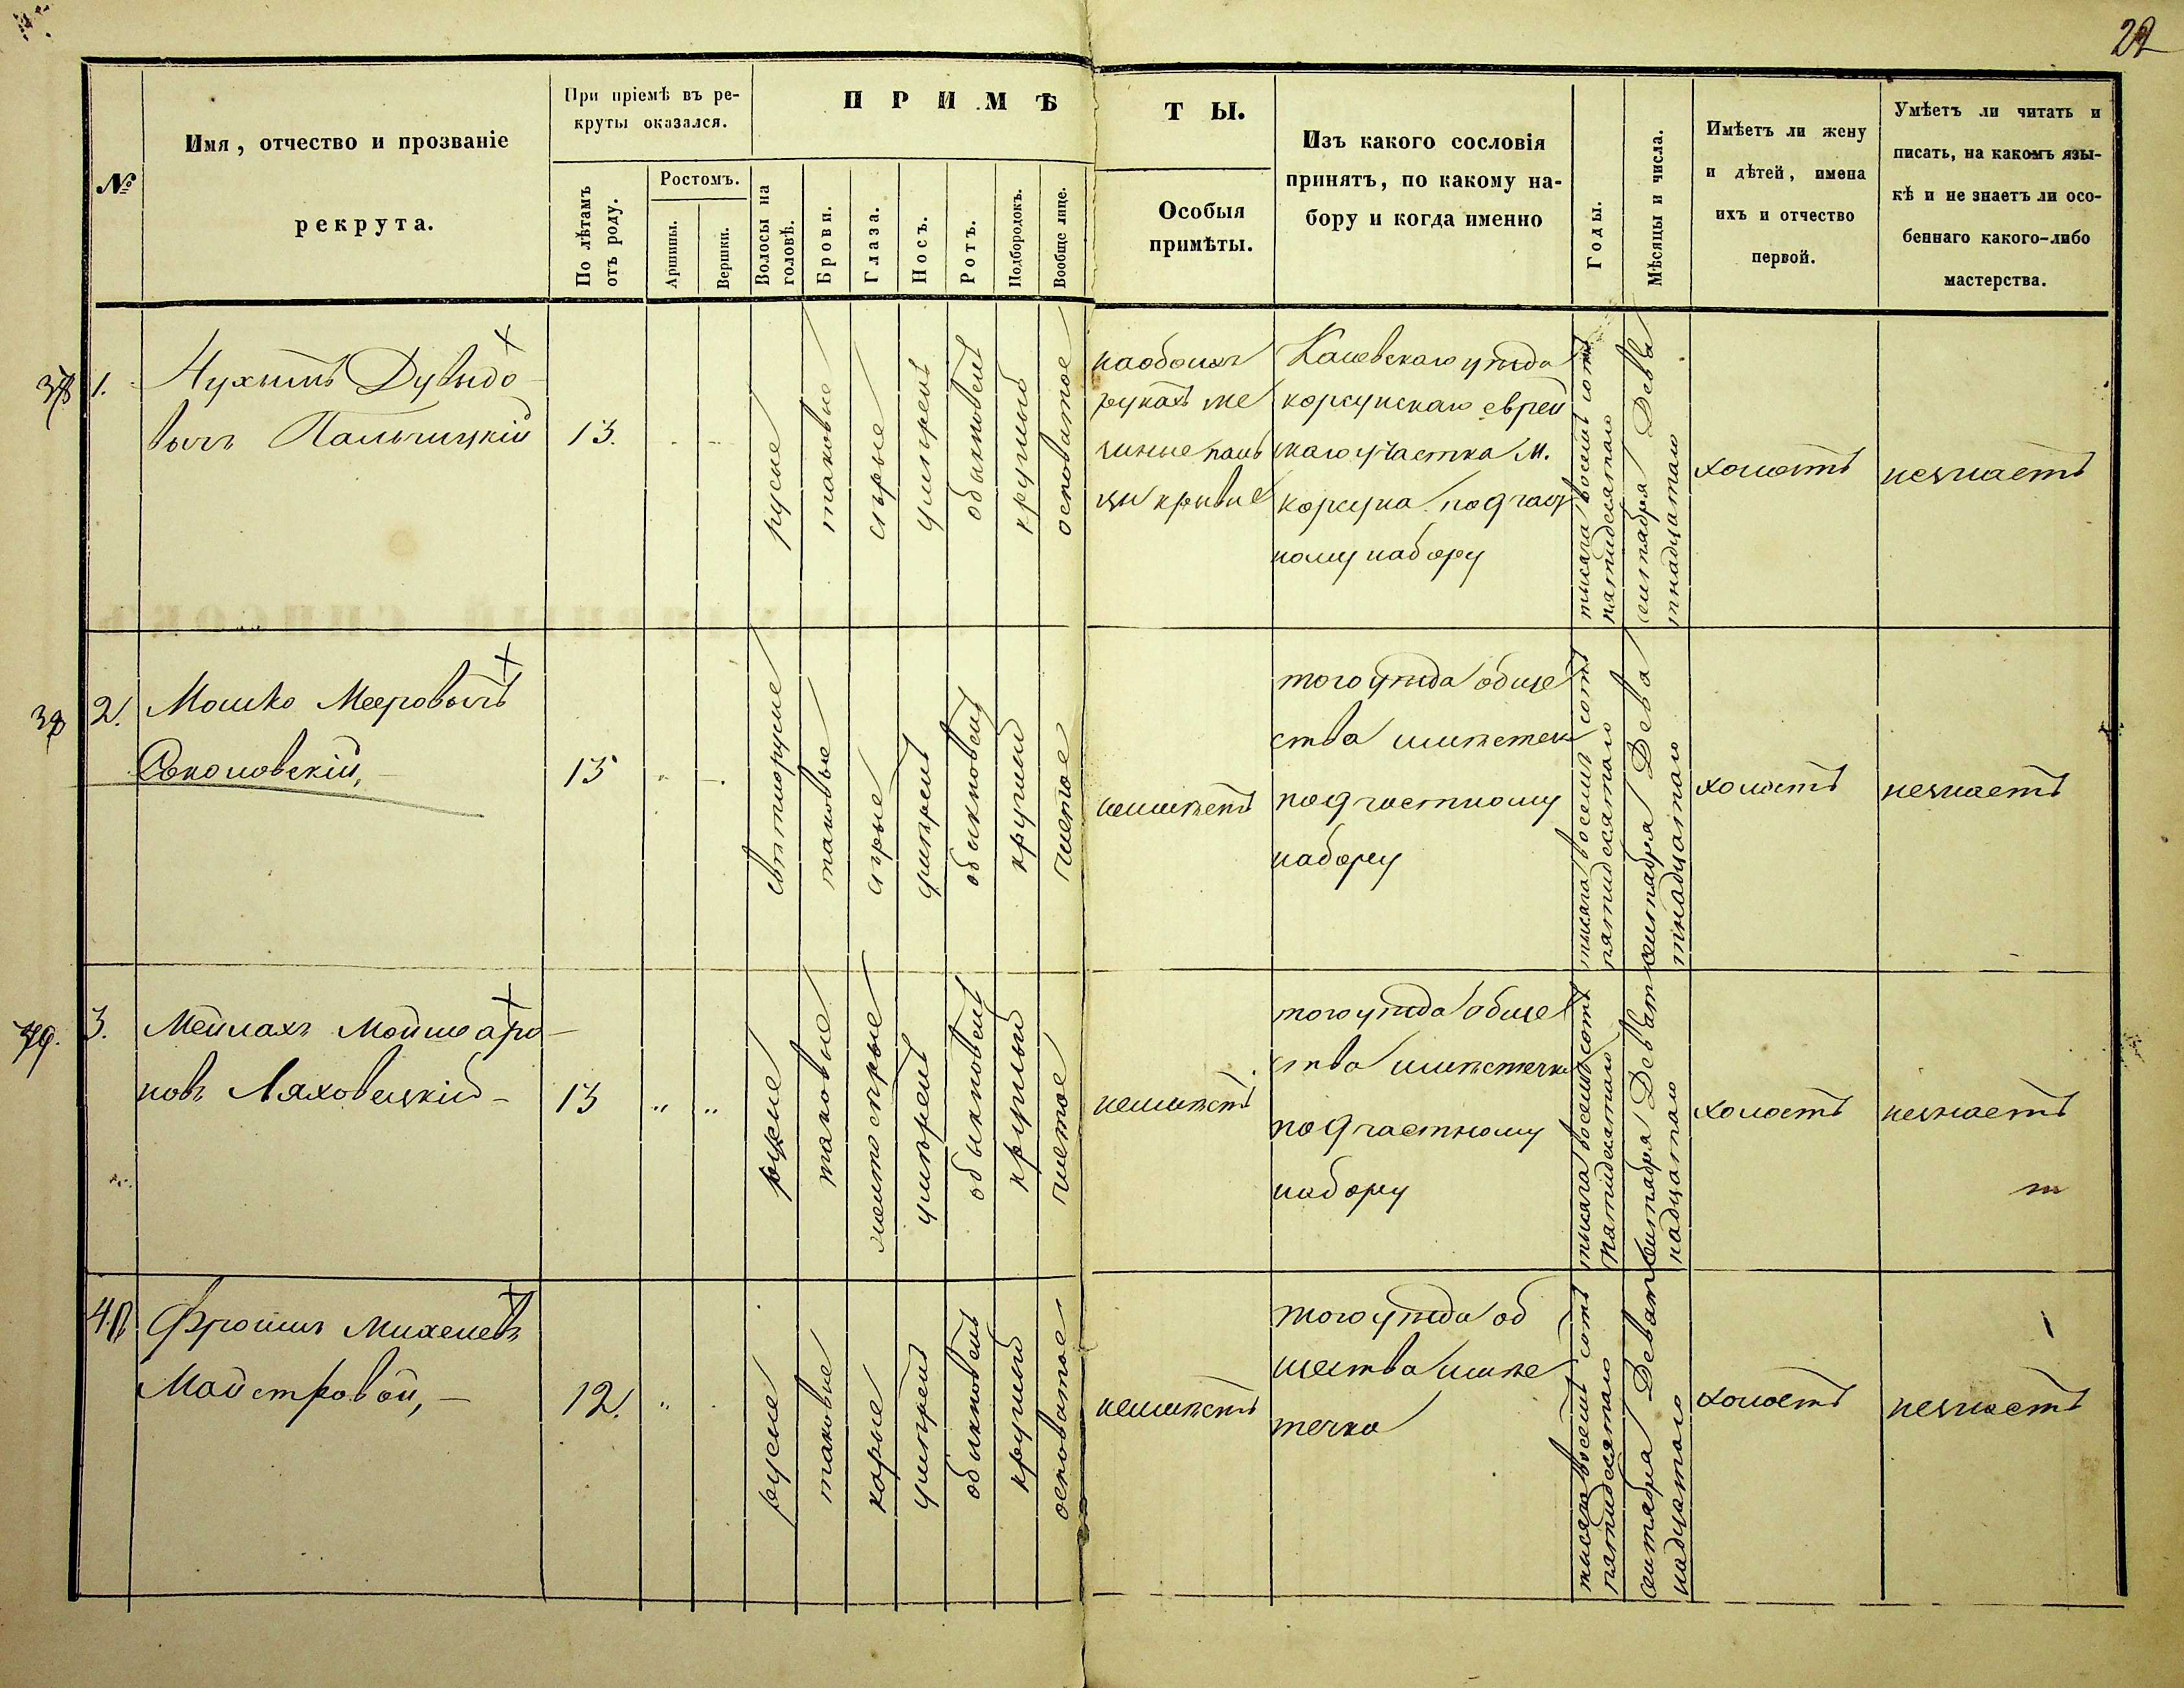 22
№
Имя, отчество и прозваніе
рекрута.
При пріемѣ въ ре-
круты оказался.
По лѣтамъ
отъ роду.
Ростомъ.
Аршины.
Вершки.
ПРИМѢ
ТЫ.
Волосы на
головѣ.
Брови.
Глаза.
Носъ.
Ротъ.
Подбородокъ.
Вообще лице.
Особыя
примѣты.
Изъ какого сословія
принятъ, по какому на-
бору и когда именно
Годы.
Мѣсяцы и числа.
Имѣетъ ли жену
и дѣтей, имена
ихъ и отчество
первой.
Умѣетъ ли читать и
писать, на какомъ язы-
кѣ и не знаетъ ли осо-
беннаго какого-либо
мастерства.
1.
Нухимъ Дувидо
вичъ Пальчицкій
13.
русые
таковые
сѣрые
умѣрен
обыкновен
круглый
осповатое
на обоихъ
рукахъ ме
зинные паль
цы кривые
Каневскаго уѣзда
корсунскаго еврей
скаго участка м.
корсуна по 9 част
ному набору
тысяча восемь сотъ
пятидесятаго
сентября Девя
тнадцатаго
холостъ
незнаетъ
2.
Мошко Мееровичъ
Соколовскій,
15
свѣтлорусые
таковые
сѣрые
умѣрен
обыкновен
круглый
чистое
неимѣетъ
того уѣзда обще
ства и мѣстеч
по 9 частному
набору
тысяча восемь сотъ
пятидесятаго
сентября Девя
тнадцатаго
холостъ
незнаетъ
3.
Мейлахъ Мойше аро
новъ Ляховецкій
13
" "
русые
таковые
желтосѣрые
умѣрен
обыкновен
круглый
чистое
неимѣетъ
того уѣзда обще
ства и мѣстечка
по 9 частному
набору
тысяча восемь сотъ
пятидесятаго
сентября Девят
надцатаго
холостъ
незнаетъ
4.
Фроимъ Михелевъ
Майстровой,
12.
"
русые
таковые
карые
умѣрен
обыкновен
круглый
осповатое
неимѣетъ
того уѣзда об
щества и мѣс
течка
тысяча восемь сотъ
пятидесятаго
сентября Девят
надцатаго
холостъ
незнаетъ